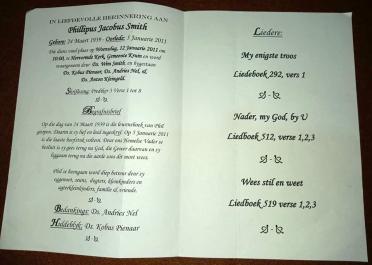 IN LIEFDEVOLLE HERINNERING AAN
Phillipus Jacobus Smith
Gebore: 24 Maart 1939 - Oorlede: 5 Januarie 2011
Die diens vind plaas op Woensdag, 12 Januarie 2011 om
10:00, te Hervormde Kerk, Gemeente Krans en word
waargeneem deur Ds. Wim Smith, en bygestaan
Ds. Kobus Pienaar, Ds. Andries Nel, &
Ds. Anton Klerngeld.
Skriflesing: Prediker 3 Vers 1 tot 8
Begrafnisbrief
Op die dag van 24 Maart 1939 is die lewensboek van Phil
geopen. Daarin is sy lief en leed ingeskryf. Op 5 Januarie 2011
is die laaste hoofstuk voltooi. Deur ons Hemelse Vader se
besluit is sy gees terug na God, die Gewer daarvan en sy
liggaam terug na die aarde soos dit moet wees.
Phil se heengaan word diep betreur deur sy
eggenoot, seuns, dogters, kleinkinders en
agterkleinkinders, familie & vriende.
Bedankings: Ds. Andries Nel
Huldeblyk: Ds. Kobus Pienaar
Liedere:
My enigste troos
Liedeboek 292, vers 1
Nader, my God, by U
Liedboek 512, verse 1,2,3
Wees stil en weet
Liedboek 519 verse 1,2,3